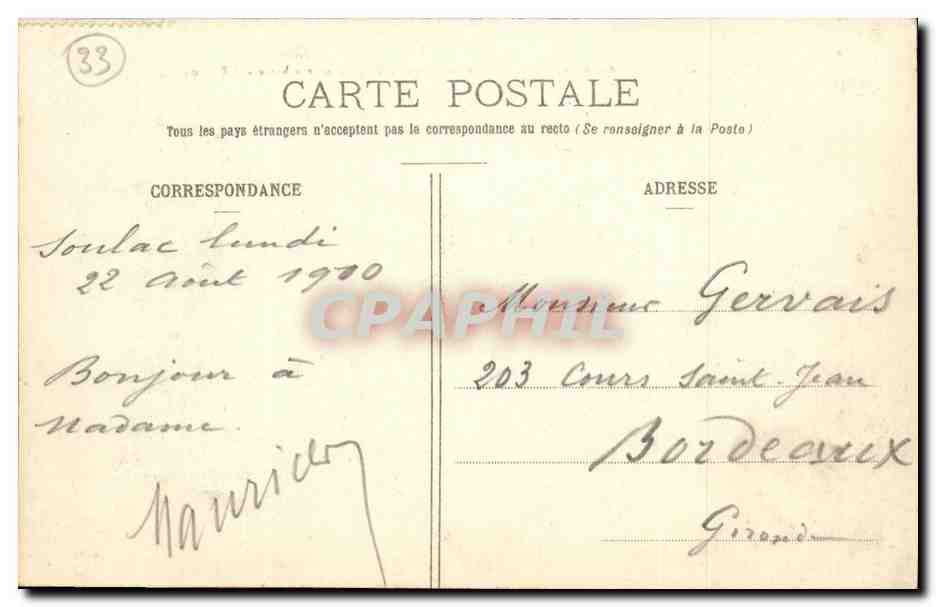 33
CARTE POSTALE
Tous les pays étrangers n'acceptent pas la correspondance au recto (Se renseigner à la Poste)
CORRESPONDANCE
Soulac lundi
22 Août 1910
Bonjour à
Madame.
ADRESSE
Monsieur Gervais
203 Cours Saint-Jean
Bordeaux
Gironde
CPAPHIL